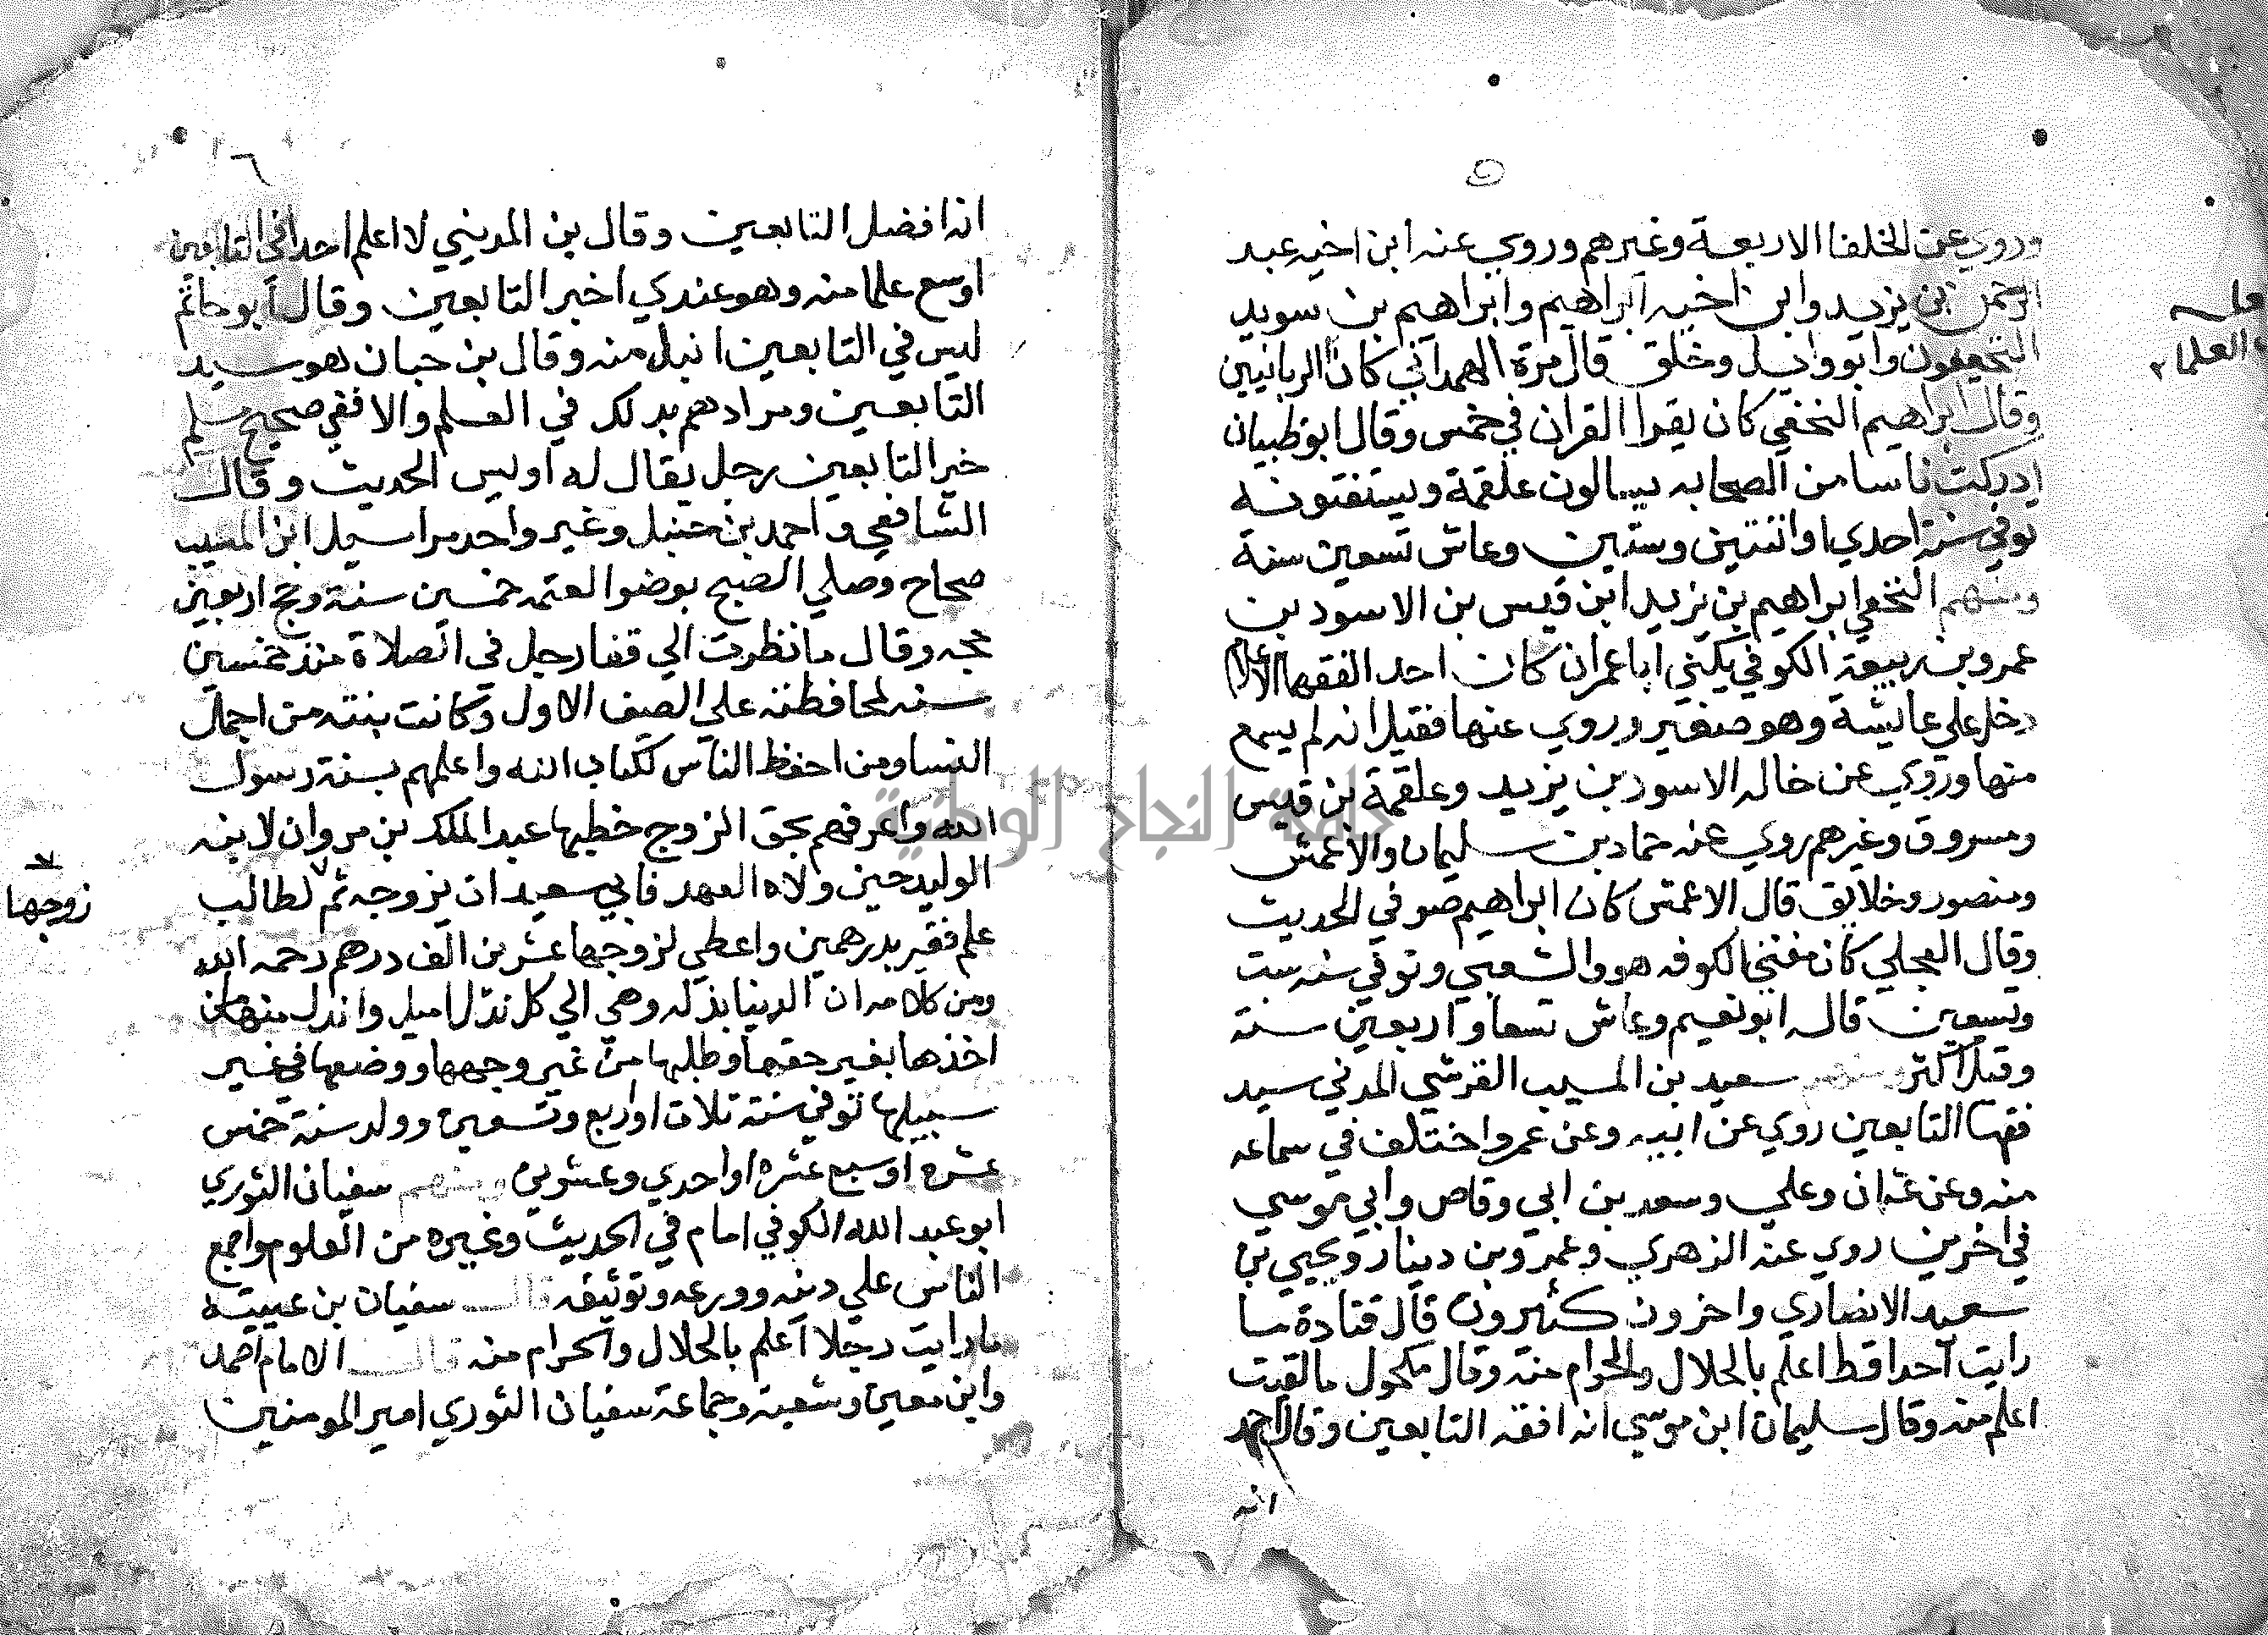 وروي عن الخلفا الاربعة وغيرهم وروي عنه ابن اخيه عبد
الرحمن بن يزيد وابن اخيه ابراهيم وابراهيم بن سويد
النخعيون وابو وايل وخلق قال مرة الهمداني كان الربانيين
وقال ابراهيم النخعي كان يقرا القران في خمس وقال ابو ظبيان
ادركت ناسا من الصحابه يسالون علقمة ويستفتونه
توفي سنة احدي او اثنتين وستين وعاش تسعين سنة
ومنهم النخعي ابراهيم بن يزيد ابن قيس بن الاسود بن
عمرو بن ربيعة الكوفي يكني ابا عمران كان احد الفقها الاعلام
دخل علي عايشة وهو صغير وروي عنها فقيل انه لم يسمع
منها وروي عن خاله الاسود بن يزيد وعلقمة بن قيس
ومسروق وغيرهم روي عنه حماد بن سليمان والاعمش
ومنصور وخلايق قال الاعمش كان ابراهيم صوفي الحديث
وقال العجلي كان مفتي الكوفه هو والشعبي وتوفي سنه ست
وتسعين قاله ابو نعيم وعاش تسعا واربعين سنة
وقيل اكثر ومنهم سعيد بن المسيب القرشي المدني سيد
فقها التابعين روي عن ابيه وعن عمر واختلف في سماعه
منه وعن عثمان وعلي وسعد بن ابي وقاص وابي موسي
في اخرين روي عنه الزهري وعمرو بن دينار ويحيي بن
سعيد الانصاري واخرون كثيرون قال قتادة ما
رايت احدا قط اعلم بالحلال والحرام منه وقال مكحول ما لقيت
اعلم منه وقال سليمان ابن موسي انه افقه التابعين وقال احمد
انه
العلما
٦
انه افضل التابعين وقال بن المديني لا اعلم احدا في التابعين
اوسع علما منه وهو عندي اخير التابعين وقال ابو حاتم
ليس في التابعين انبل منه وقال بن حبان هو سيد
التابعين ومرادهم بذلك في العلم والا ففي صحيح مسلم
خير التابعين رجل يقال له اويس الحديث وقال
الشافعي واحمد بن حنبل وغير واحد مراسيل ابن المسيب
صحاح وصلي الصبح بوضوا العتمه خمسين سنة وحج اربعين
حجه وقال ما نظرت الي قفا رجل في الصلاة منذ خمسين
سنه لمحافظته علي الصف الاول وكانت بنته من اجمل
النسا ومن احفظ الناس لكتاب الله واعلمهم بسنة رسول
الله واعرفهم بحق الزوج خطبها عبد الملك بن مروان لابنه
الوليد حين ولاه العهد فابي سعيد ان يزوجه ثم لطالب
زوجها
علم فقير بدرهمين واعطي لزوجها عشرين الف درهم رحمه الله
ومن كلامه ان الدنيا بذله وهي الي كل نذل اميل وانذل منها من
اخذها بغير حقها وطلبها من غير وجهها ووضعها في غير
سبيلها توفي سنة ثلاث او اربع وتسعين وولد سنة خمس
عشره او سبع عشره او احدي وعشرين ومنهم سفيان الثوري
ابو عبد الله الكوفي امام في الحديث وغيره من العلوم واجمع
الناس علي دينه وورعه وتوثيقه قال سفيان بن عيينه
ما رايت رجلا اعلم بالحلال والحرام منه قال الامام احمد
وابن معين وشعبة وجماعة سفيان الثوري امير المومنين
جامعة النجاح الوطنية